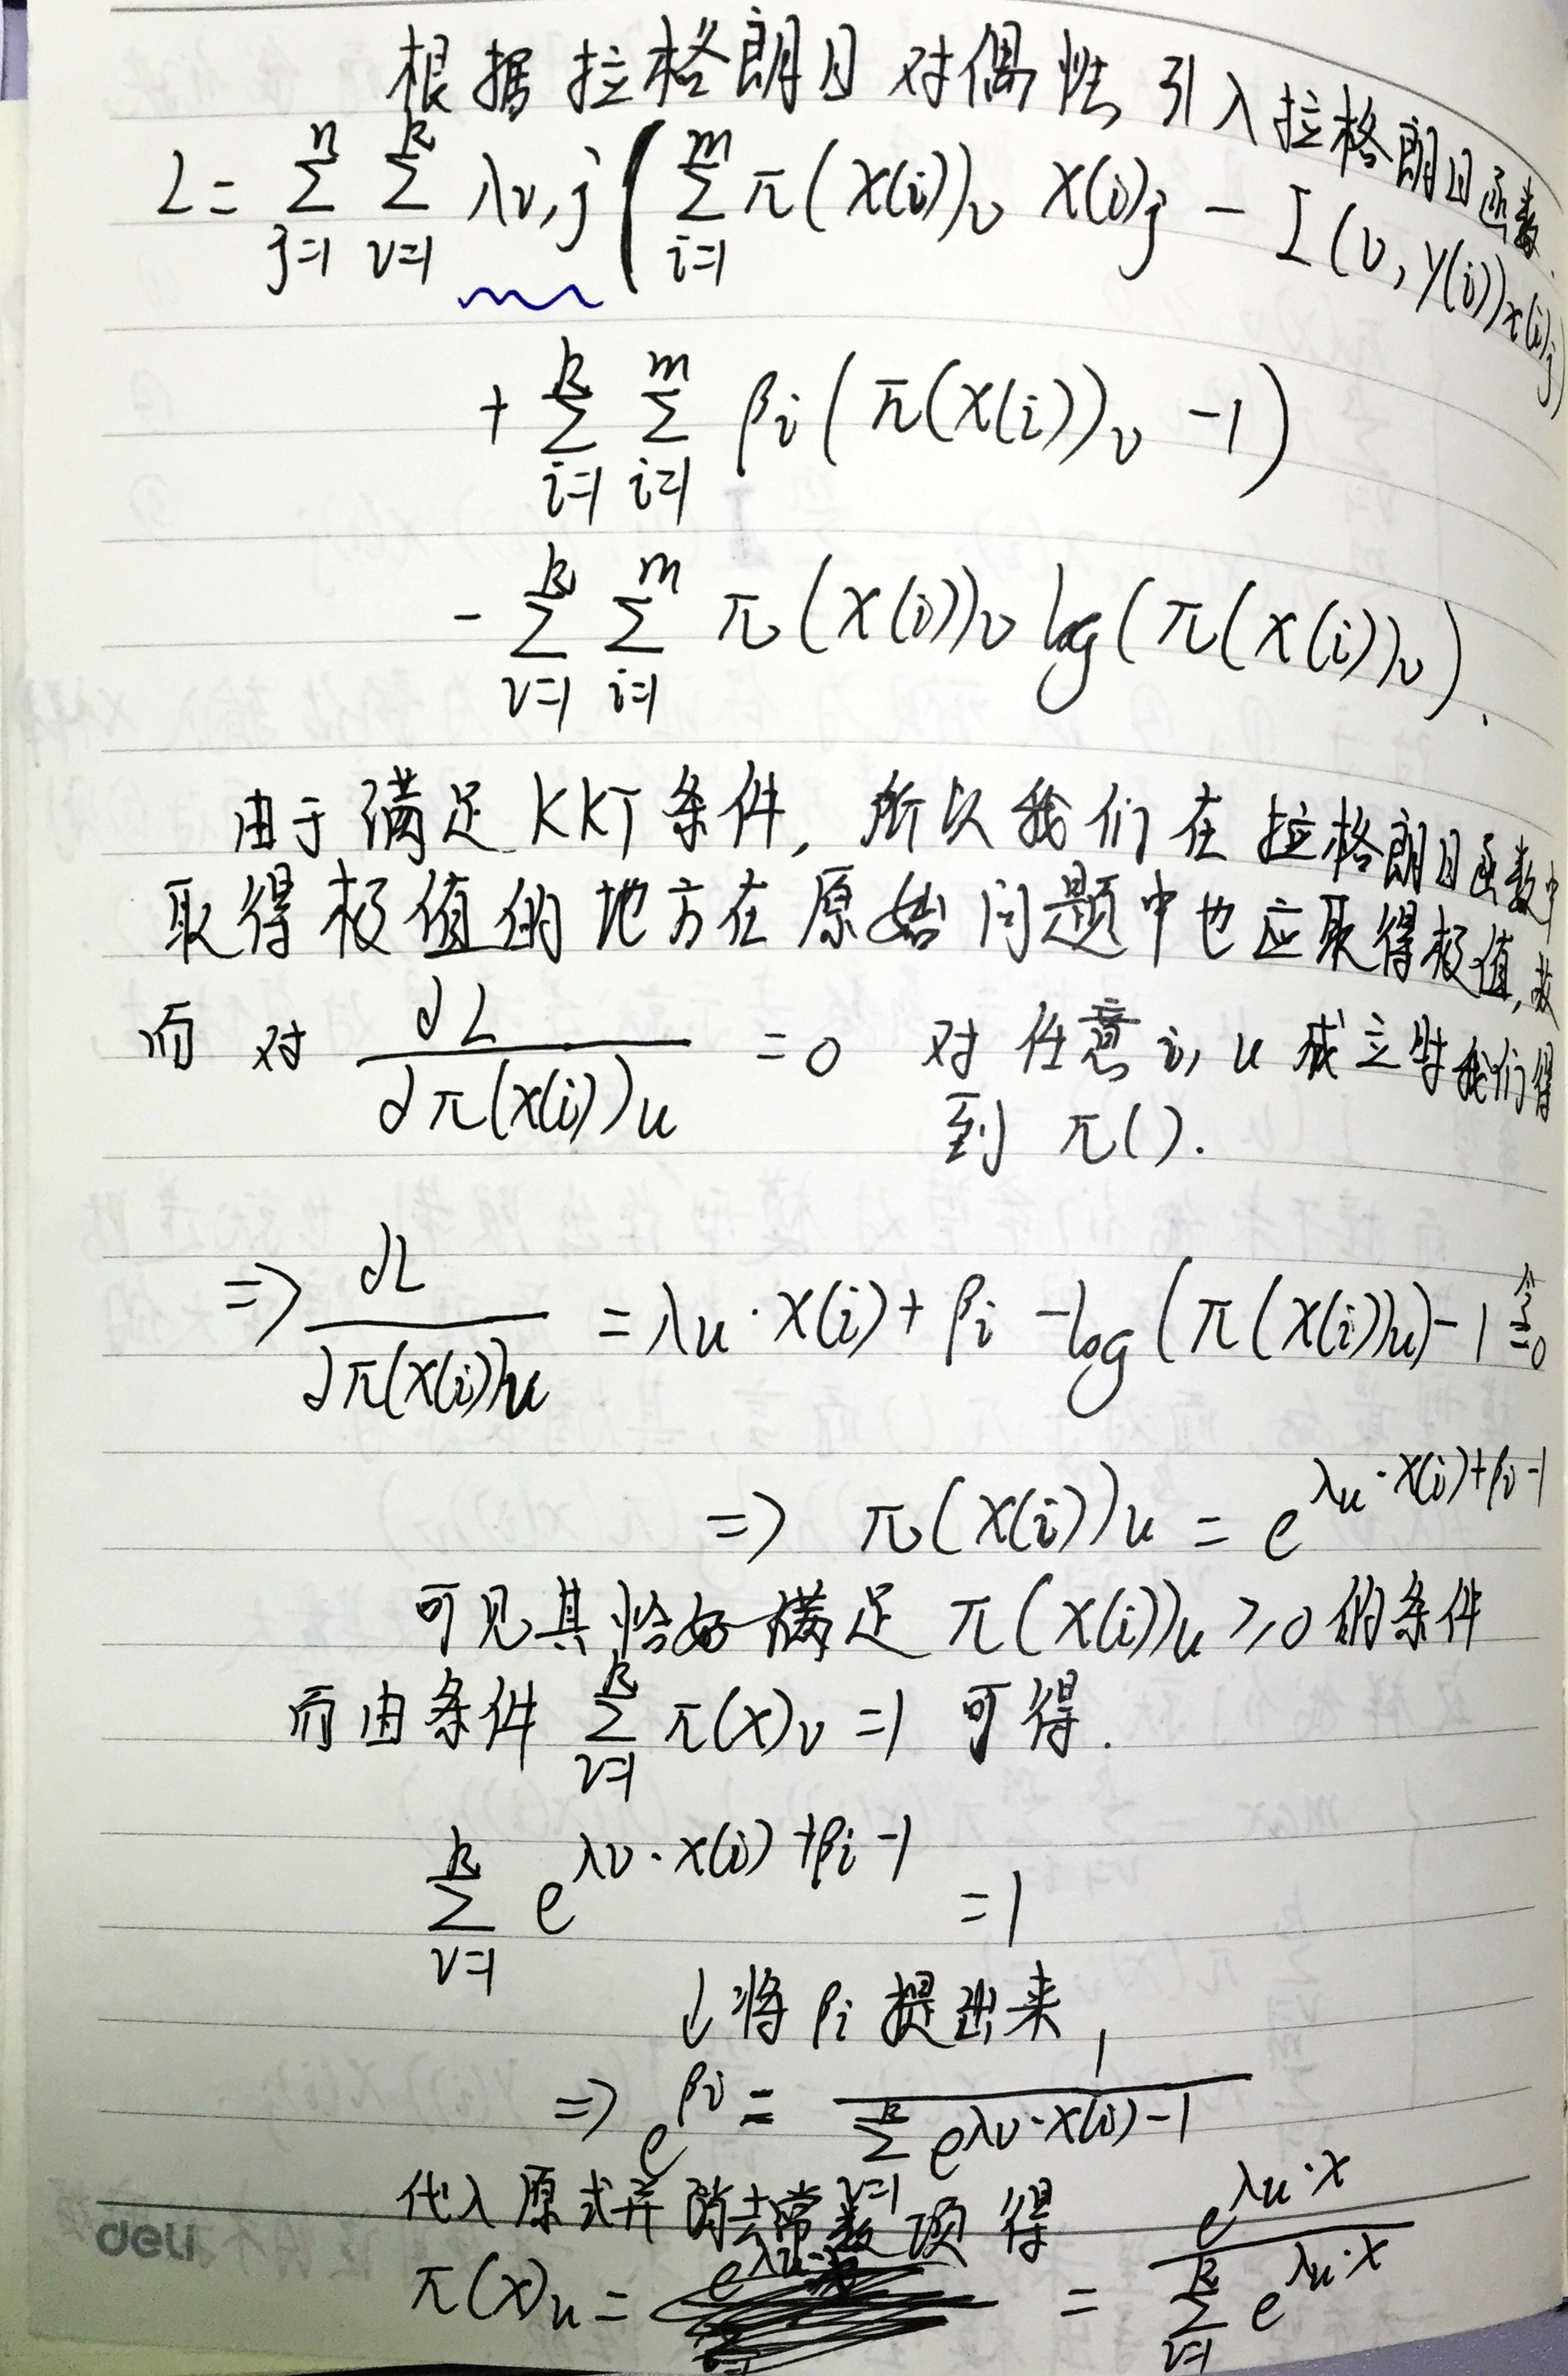 根据拉格朗日对偶性 引入拉格朗日函数.
L = ∑_{j=1}^{n} ∑_{v=1}^{k} λv,j ( ∑_{i=1}^{m} π(x(i))v x(i)j − I(v, y(i))x(i)j )
+ ∑_{i=1}^{k} ∑_{i=1}^{m} βi ( π(x(i))v −1 )
− ∑_{v=1}^{k} ∑_{i=1}^{m} π(x(i))v log(π(x(i))v).
由于满足KKT条件, 所以我们在拉格朗日函数中
取得极值的地方在原始问题中也应取得极值, 故
而对 ∂L/∂π(x(i))u = 0 对任意 i, u 成立时我们得
到 π().
⇒ ∂L/∂π(x(i))u = λu·x(i) + βi − log(π(x(i))u) − 1 令= 0
⇒ π(x(i))u = e^{λu·x(i)+βi−1}
可见其恰好满足 π(x(i))u ≥0 的条件
而由条件 ∑_{v=1}^{k} π(x)v =1 可得.
∑_{v=1}^{k} e^{λv·x(i)+βi−1} = 1
↓将βi提出来
⇒ e^{βi} = 1/∑_{v=1}^{k} e^{λv·x(i)−1}
代入原式并消去常数项 得
π(x)u = = e^{λu·x}/∑_{v=1}^{k} e^{λu·x}
deli